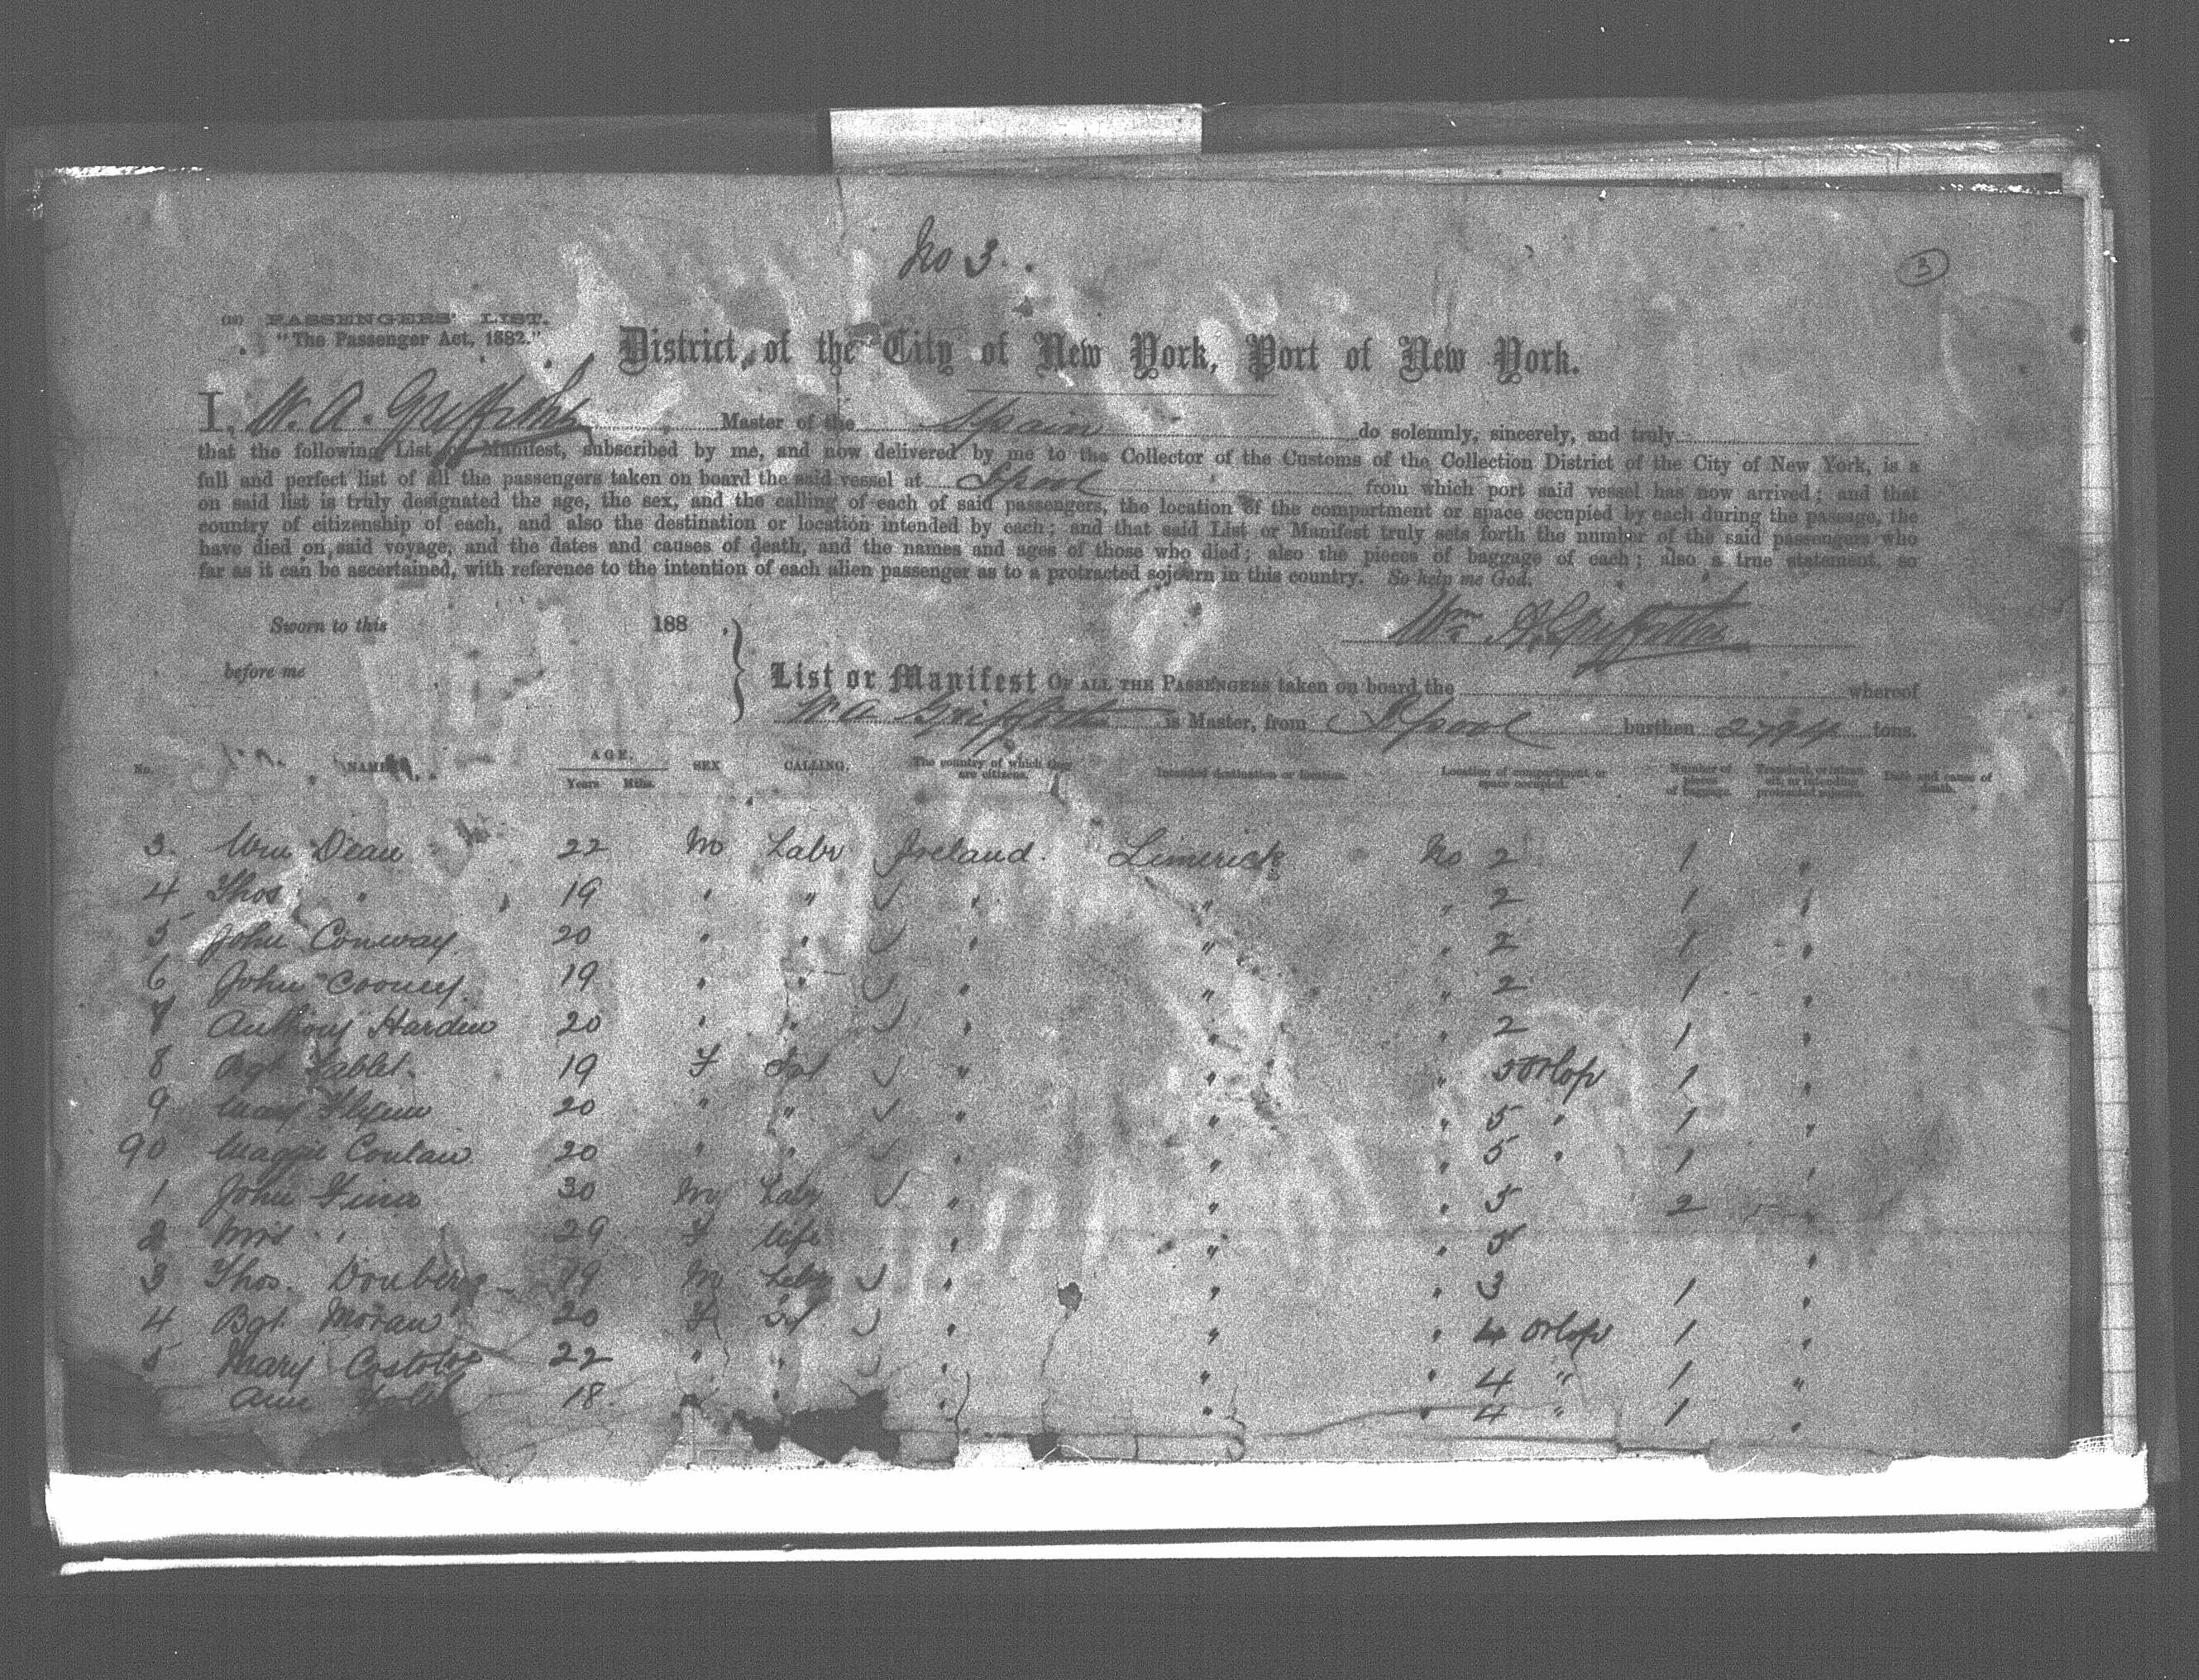 No 3.
3
(18) PASSENGERS' LIST.
"The Passenger Act, 1882."
District of the City of New York, Port of New York.
I, W. A. Griffiths Master of the Spain do solemnly, sincerely, and truly
that the following List or Manifest, subscribed by me, and now delivered by me to the Collector of the Customs of the Collection District of the City of New York, is a
full and perfect list of all the passengers taken on board the said vessel at L'pool from which port said vessel has now arrived; and that
on said list is truly designated the age, the sex, and the calling of each of said passengers, the location of the compartment or space occupied by each during the passage, the
country of citizenship of each, and also the destination or location intended by each; and that said List or Manifest truly sets forth the number of the said passengers who
have died on said voyage, and the dates and causes of death, and the names and ages of those who died; also the pieces of baggage of each; also a true statement, so
far as it can be ascertained, with reference to the intention of each alien passenger as to a protracted sojourn in this country. So help me God.
Wm A Griffiths
Sworn to this 188 .
before me
List or Manifest OF ALL THE PASSENGERS taken on board the whereof
W A Griffiths is Master, from L'pool burthen 2794 tons.
No. NAMES. AGE. Years Mths. SEX CALLING. The country of which they are citizens. Intended destination or location. Location of compartment or space occupied. Number of pieces of baggage. Transient, or in transit, or intending protracted sojourn. Date and cause of death.
3. Wm Dean 22 M Labr Ireland. Limerick No 2 1 "
4 Thos " 19 " " " " " 2 1 "
5 John Conway 20 " " " " " 2 1 "
6 John Cooney 19 " " " " " 2 1 "
7 Anthony Harden 20 " " " " " 2 1 "
8 Bgt 19 F " " " 5 Orlop 1 "
9 Mary Flynn 20 " " " " " 5 " 1 "
90 Maggie Conlan 20 " " " " " 5 " 1 "
1 John Finn 30 M Labr " " " 5 2 "
2 Mrs " 29 F Wife " " " 5 "
3 Thos. 19 M Labr " " " 3 1 "
4 Bgt Moran 20 F " " " 4 Orlop 1 "
5 Mary 22 " " " " " 4 " 1 "
Ann 18 " " " " " 4 " 1 "